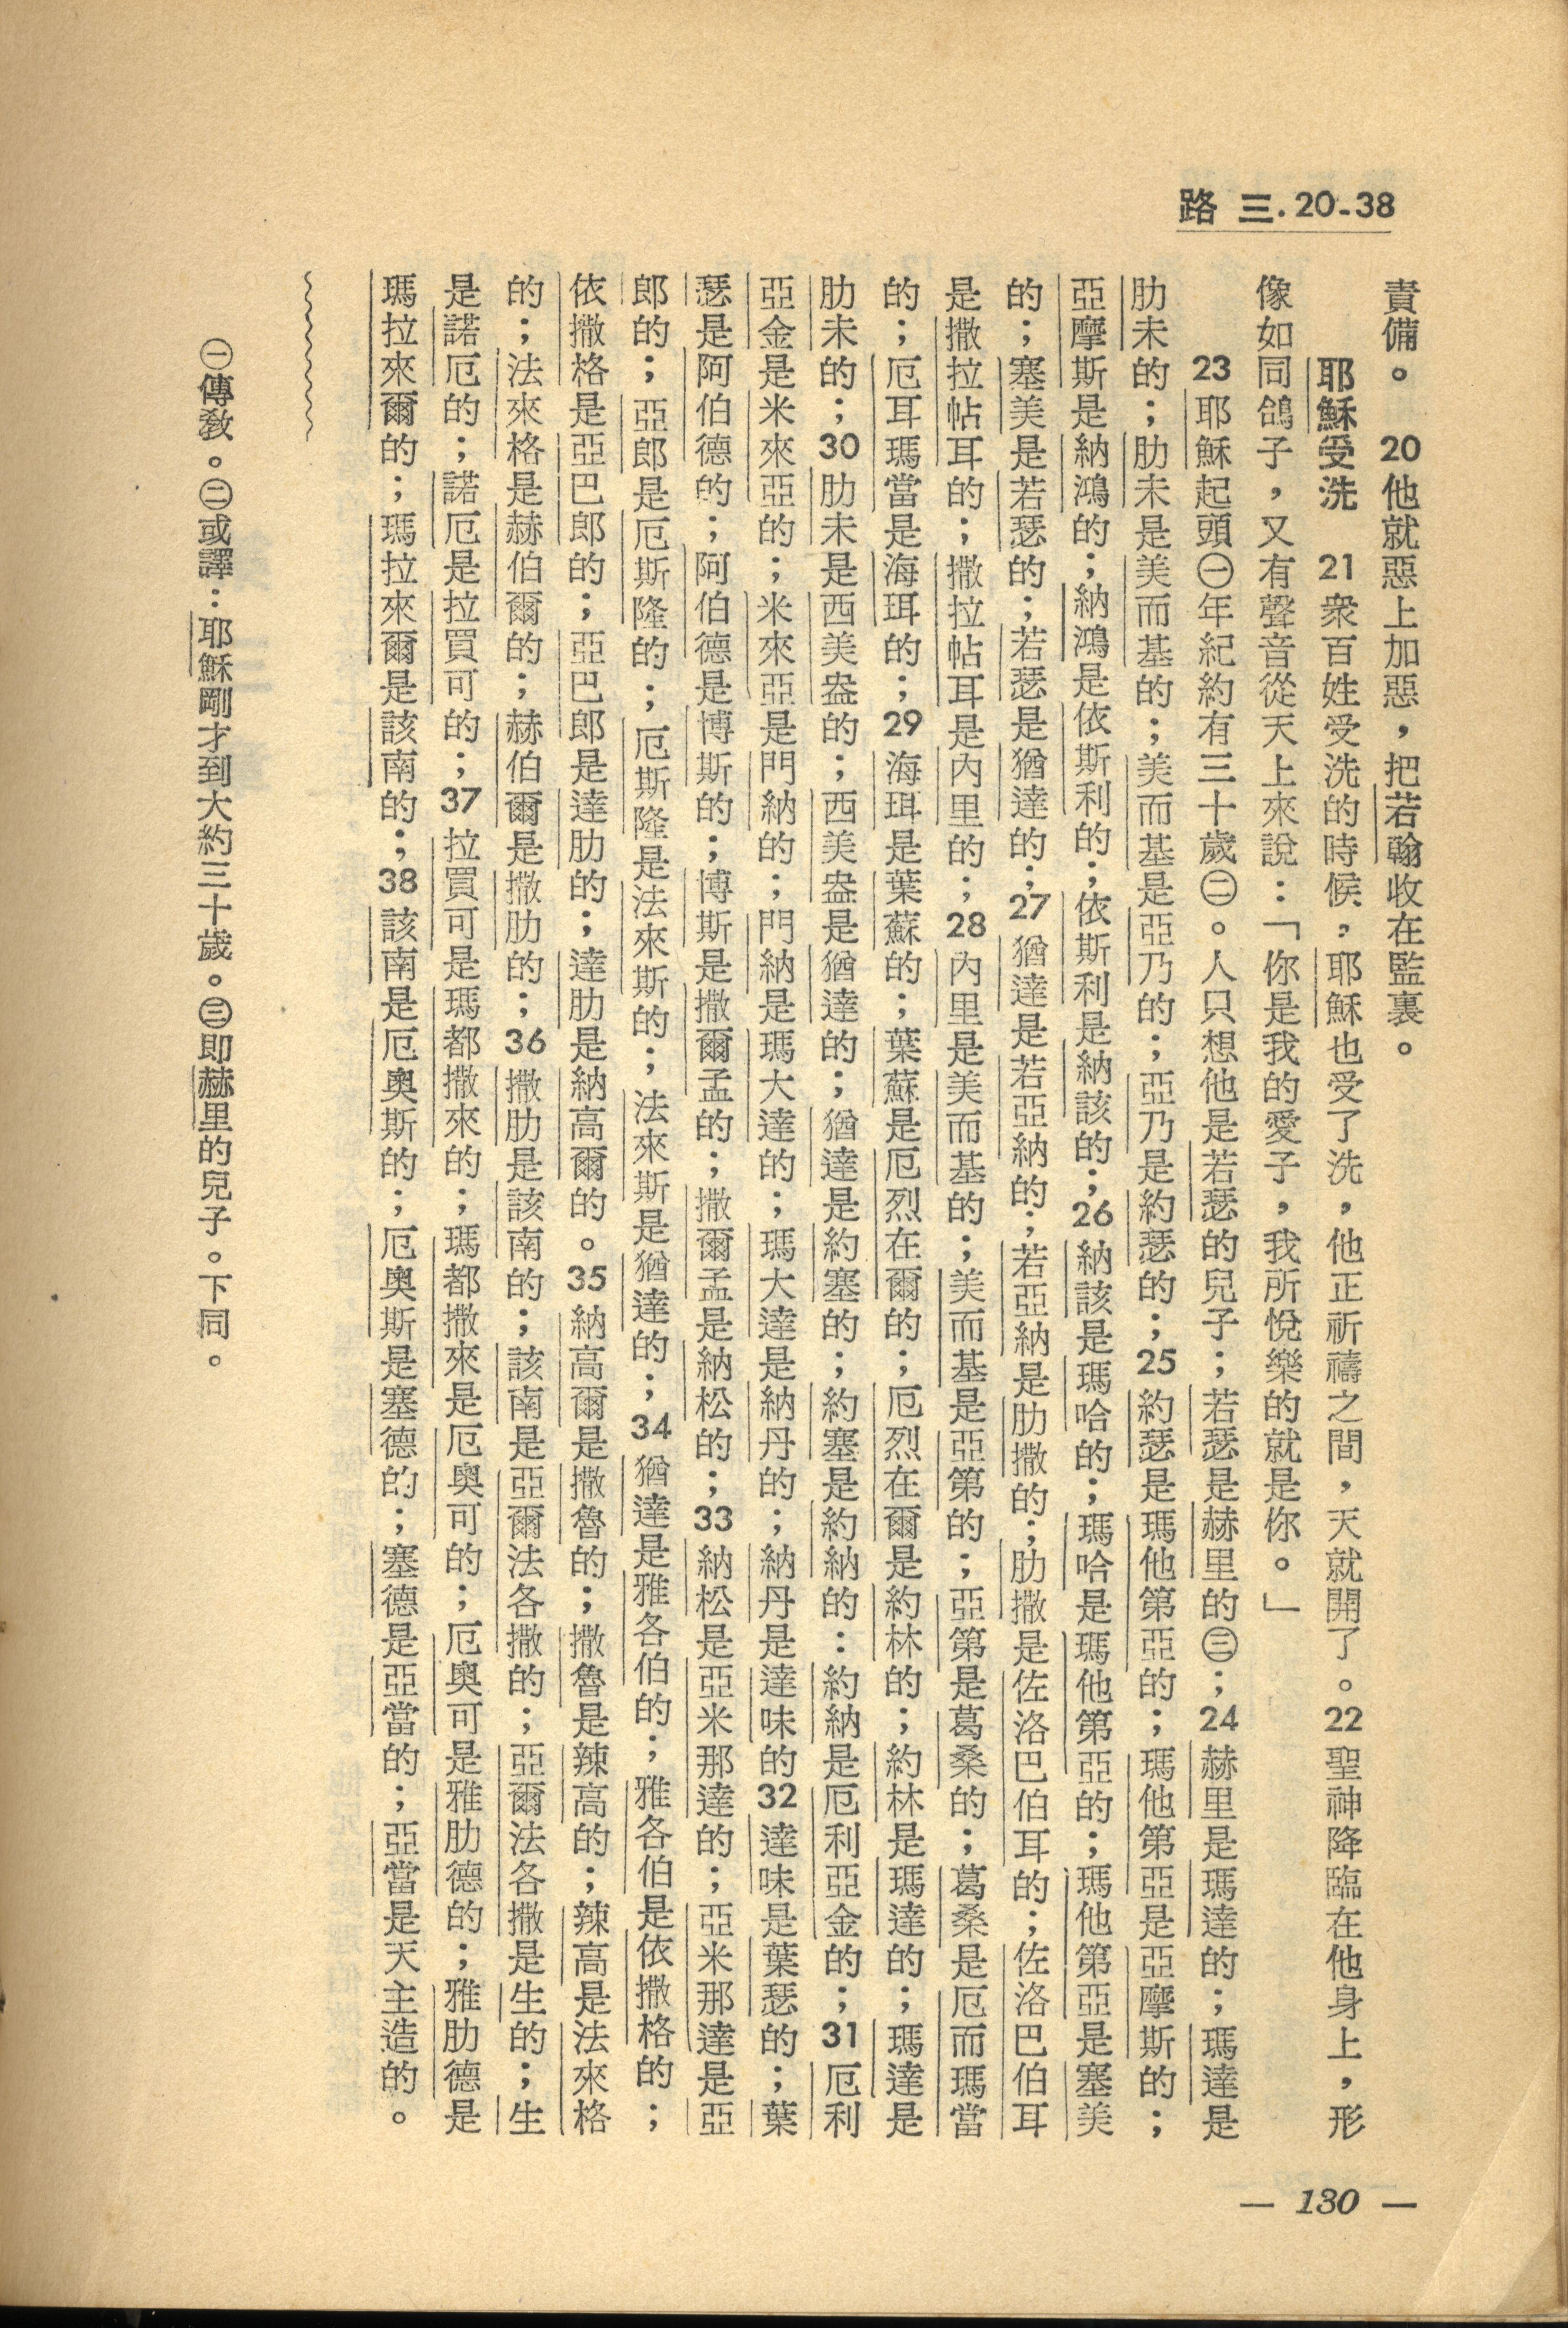 路 三.20-38
責備。 20他就惡上加惡，把若翰收在監裏。
耶穌受洗 21衆百姓受洗的時候，耶穌也受了洗，他正祈禱之間，天就開了。22聖神降臨在他身上，形
像如同鴿子，又有聲音從天上來說：「你是我的愛子，我所悅樂的就是你。」
23耶穌起頭㊀年紀約有三十歲㊁。人只想他是若瑟的兒子；若瑟是赫里的㊂；24赫里是瑪達的；瑪達是
肋未的；肋未是美而基的；美而基是亞乃的；亞乃是約瑟的；25約瑟是瑪他第亞的；瑪他第亞是亞摩斯的；
亞摩斯是納鴻的；納鴻是依斯利的；依斯利是納該的；26納該是瑪哈的；瑪哈是瑪他第亞的；瑪他第亞是塞美
的；塞美是若瑟的；若瑟是猶達的；27猶達是若亞納的；若亞納是肋撒的；肋撒是佐洛巴伯耳的；佐洛巴伯耳
是撒拉帖耳的；撒拉帖耳是內里的；28內里是美而基的；美而基是亞第的；亞第是葛桑的；葛桑是厄而瑪當
的；厄耳瑪當是海珥的；29海珥是葉蘇的；葉蘇是厄烈在爾的；厄烈在爾是約林的；約林是瑪達的；瑪達是
肋未的；30肋未是西美盎的；西美盎是猶達的；猶達是約塞的；約塞是約納的：約納是厄利亞金的；31厄利
亞金是米來亞的；米來亞是門納的；門納是瑪大達的；瑪大達是納丹的；納丹是達味的32達味是葉瑟的；葉
瑟是阿伯德的；阿伯德是博斯的；博斯是撒爾孟的；撒爾孟是納松的；33納松是亞米那達的；亞米那達是亞
郎的；亞郎是厄斯隆的；厄斯隆是法來斯的；法來斯是猶達的；34猶達是雅各伯的；雅各伯是依撒格的；
依撒格是亞巴郎的；亞巴郎是達肋的；達肋是納高爾的。35納高爾是撒魯的；撒魯是辣高的；辣高是法來格
的；法來格是赫伯爾的；赫伯爾是撒肋的；36撒肋是該南的；該南是亞爾法各撒的；亞爾法各撒是生的；生
是諾厄的；諾厄是拉買可的；37拉買可是瑪都撒來的；瑪都撒來是厄奥可的；厄奥可是雅肋德的；雅肋德是
瑪拉來爾的；瑪拉來爾是該南的；38該南是厄奥斯的；厄奥斯是塞德的；塞德是亞當的；亞當是天主造的。
㊀傳敎。㊁或譯：耶穌剛才到大約三十歲。㊂即赫里的兒子。下同。
— 130 —